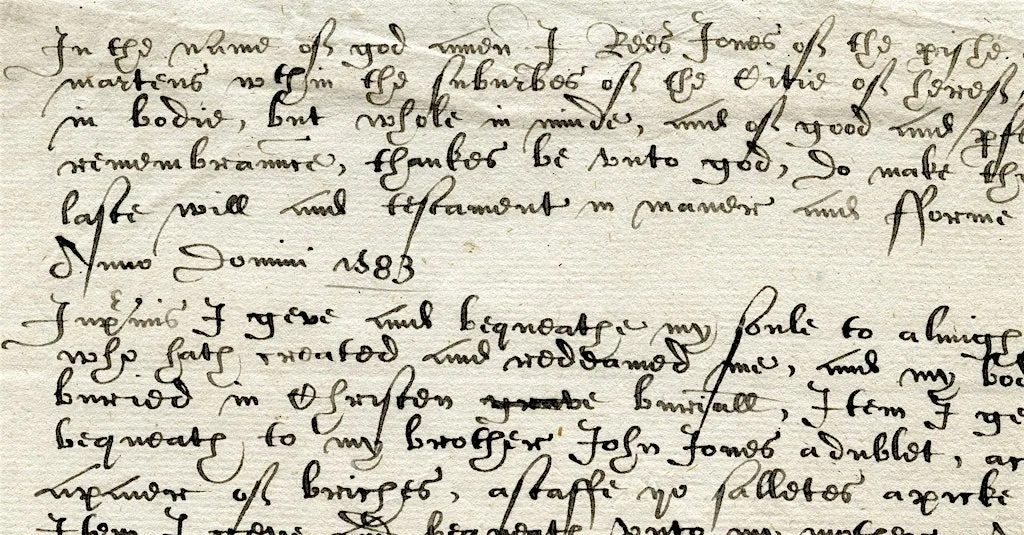 In the name of god amen I Rees Jones of the pishe
martens wthin the suburbes of the Citie of heref
in bodie, but whole in minde, and of good and pfe
remembraunce, thankes be vnto god, do make th
laste will and testament in maner and fforme
Anno Domini 1583
Inprimis I geve and bequeathe my soule to almigh
who hath created and redeamed me, and my bod
buried in Christen buriall, Item I ge
bequeath to my brother John Jones a dublet, a
of briches, a staffe salletes a picke
Item I geve and bequeath vnto my mother